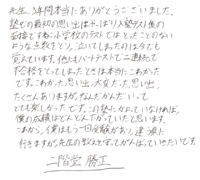 先生、3年間本当にありがとうございました。
塾での最初の思い出はやっぱり入塾テスト後の
面接ですね。小学校のテストではとったことのない
ような点数をとり、泣いてしまったのは今でも
覚えています。他にもハートテストで二連続で
不合格をとってしまったときは本当にこわかった
です。こわかった思い出、大変だった思い出、
たくさんありますが、なんだかんだいって
とても楽しかったです。この塾に入っていなければ、
僕の成績はどんどん下がっていたと思います。
これから、僕はもう一回受験があり、
行きますが、先生の教えを守ってがんばっていきたいです。
二階堂 勝正